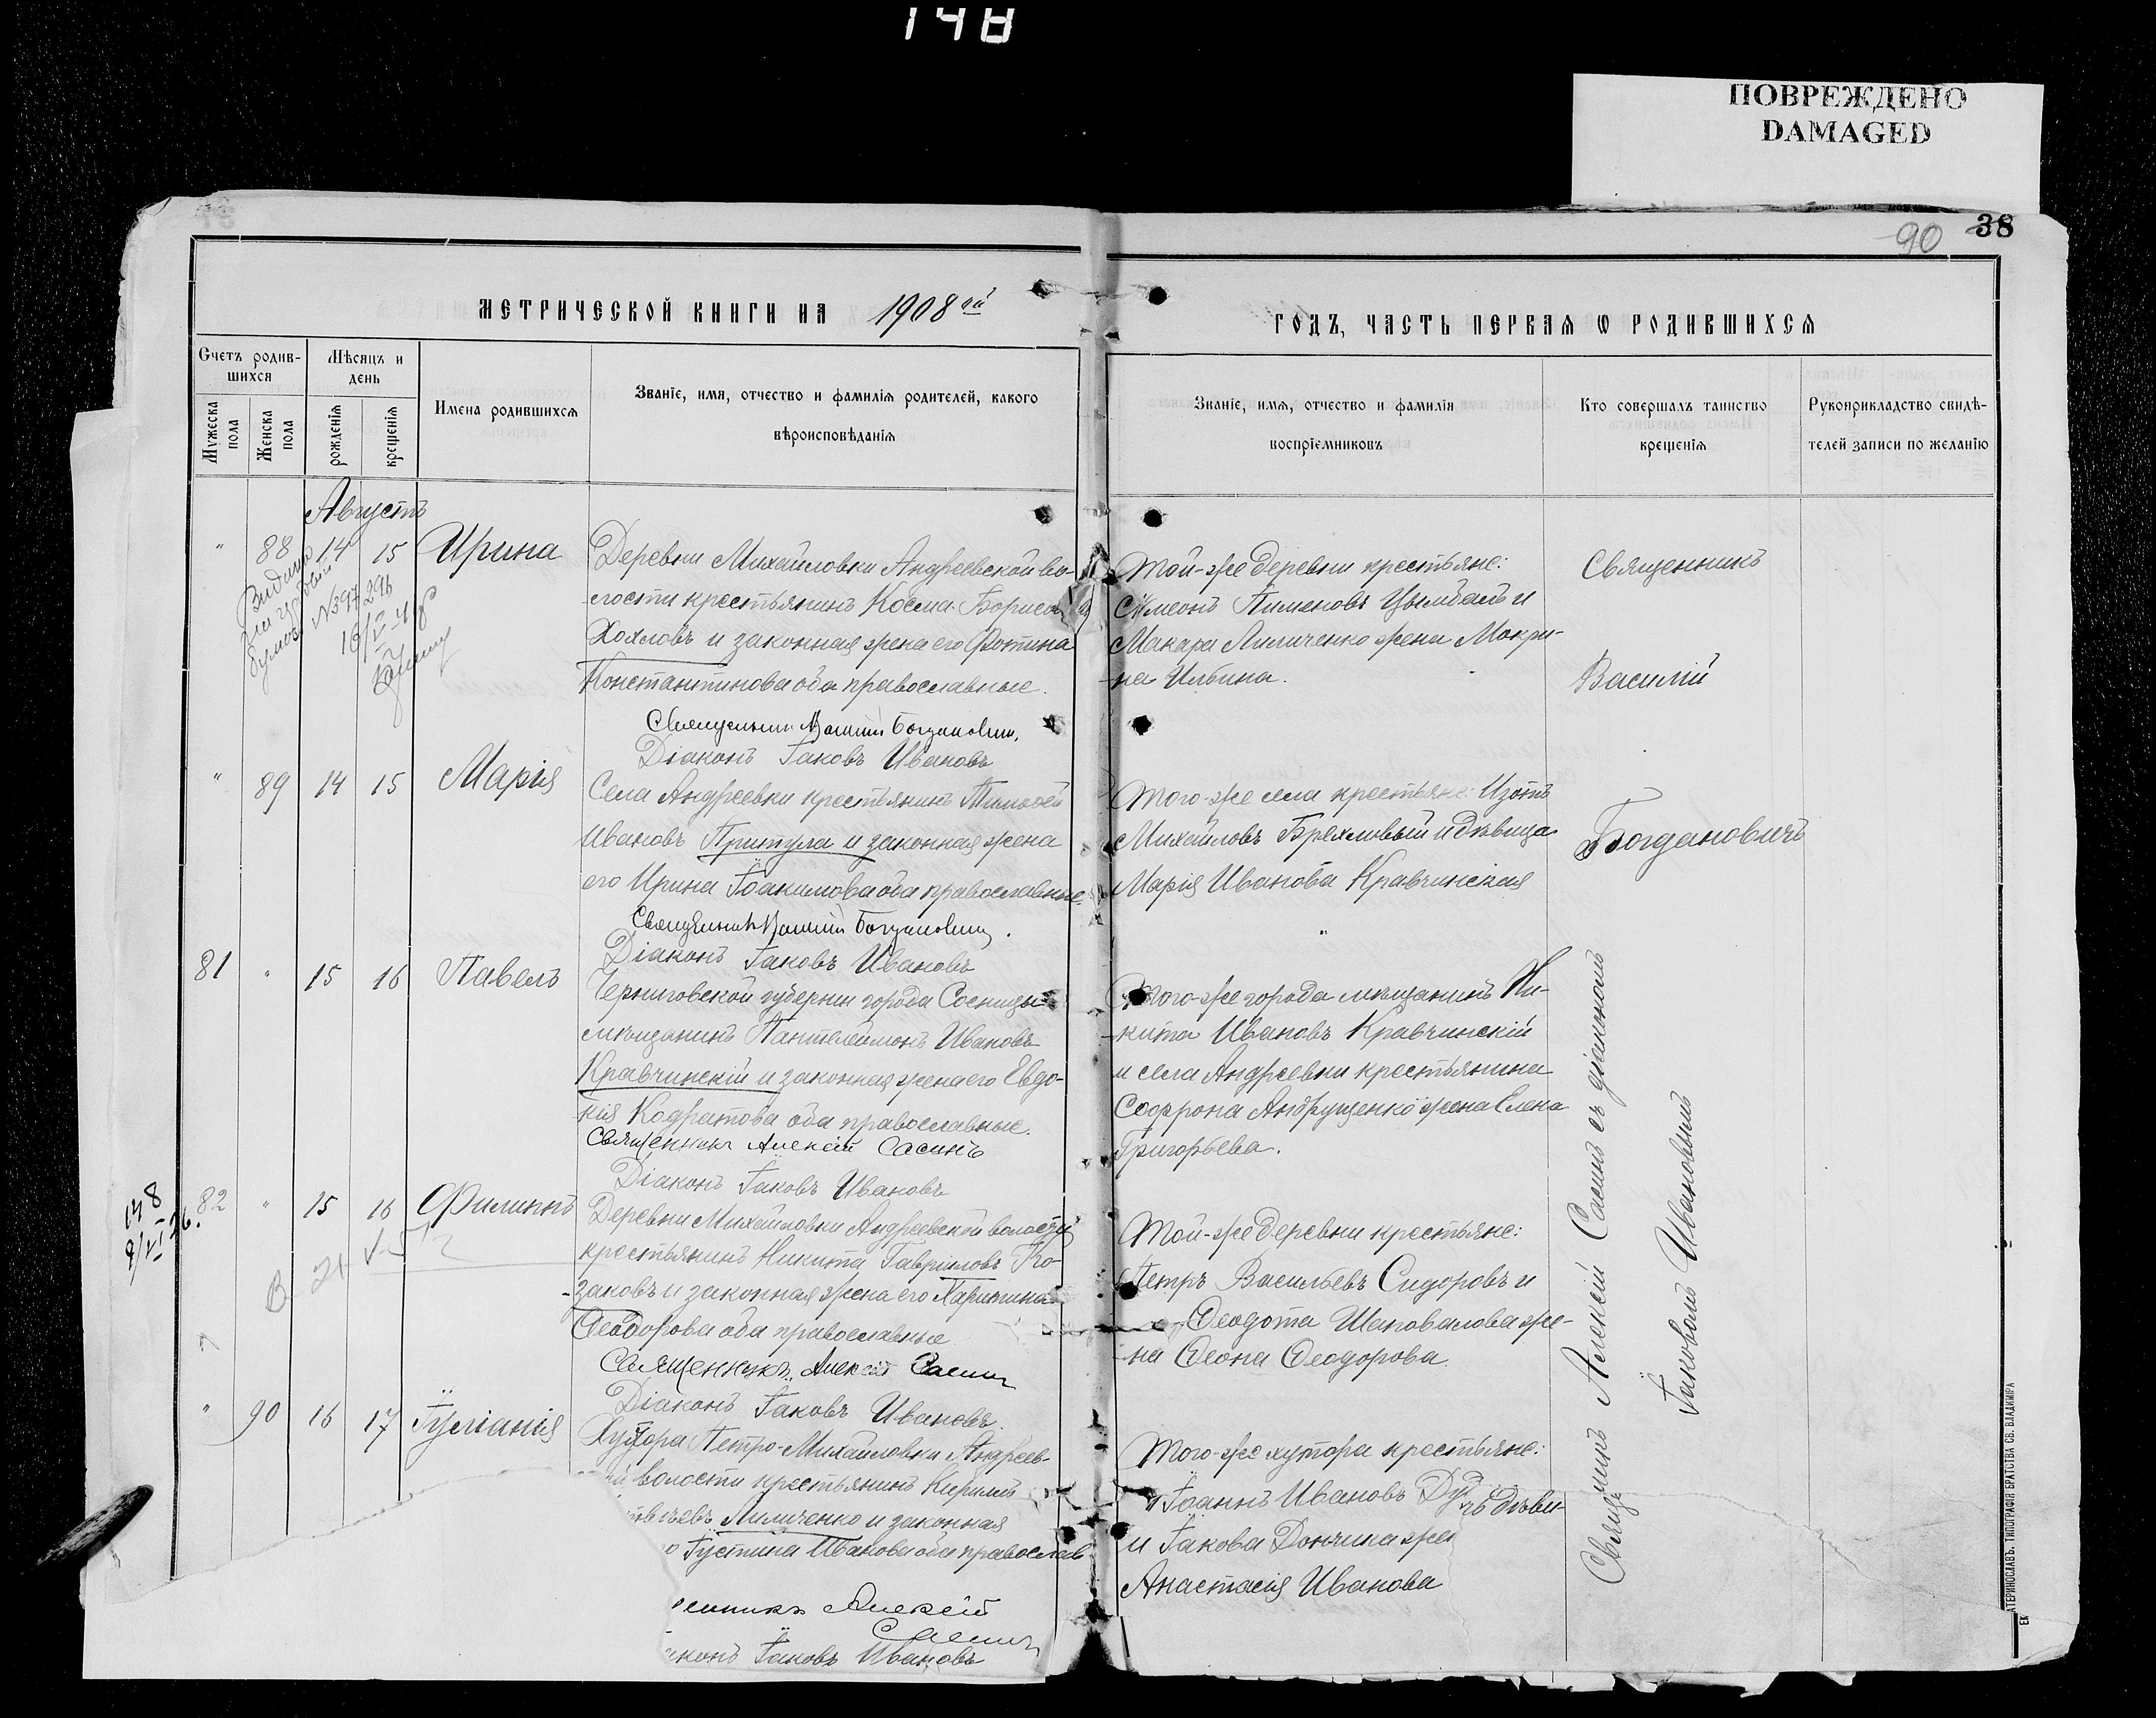 148
ПОВРЕЖДЕНО
DAMAGED
90 38
МЕТРИЧЕСКОЙ КНИГИ НА 1908ой
ГОДЪ, ЧАСТЬ ПЕРВАЯ Ѡ РОДИВШИХСЯ
Счетъ родив-
шихся
Мѣсяцъ и
день
Мужеска
пола
Женска
пола
рожденія
крещенія
Имена родившихся
Званіе, имя, отчество и фамилія родителей, какого
вѣроисповѣданія
Званіе, имя, отчество и фамилія
воспріемниковъ
Кто совершалъ таинство
крещенія
Рукоприкладство свидѣ-
телей записи по желанію
Августъ
" 88 14 15 Ирина
Деревни Михайловки Андреевской во-
лости крестьянинъ Косма Борисов
Хохловъ и законная жена его Фотина
Константинова оба православные.
Священникъ Василій Богдановичъ.
Діаконъ Іаковъ Ивановъ
Той-же деревни крестьяне:
Симеонъ Пименовъ Цымбалъ и
Макара Лиличенко жена Макри-
на Ильина.
Священникъ
Василій
Богдановичъ
" 89 14 15 Марія
Села Андреевки крестьянинъ Тимоѳей
Ивановъ Притула и законная жена
его Ирина Іоакимова оба православные.
Священникъ Василій Богдановичъ.
Діаконъ Іаковъ Ивановъ
Того-же села крестьяне: Изотъ
Михайловъ Брехливый и дѣвица
Марія Иванова Кравчинская
81 " 15 16 Павелъ
Черниговской губерніи города Сосницы
мѣщанинъ Пантелеимонъ Ивановъ
Кравчинскій и законная жена его Евдо-
кія Кодратова оба православные.
Священникъ Алексій Сасинъ
Діаконъ Іаковъ Ивановъ
Того-же города мѣщанинъ Ни-
кита Ивановъ Кравчинскій
и села Андреевки крестьянина
Софрона Андрущенко жена Елена
Григорьева.
Священникъ Алексій Сасинъ съ діакономъ
Іаковомъ Ивановымъ
148
82 " 15 16 Филиппъ
Деревни Михайловки Андреевской волости
крестьянинъ Никита Гавріиловъ Ко-
заковъ и законная жена его Харитина
Ѳеодорова оба православные
Священникъ Алексій Сасинъ
Діаконъ Іаковъ Ивановъ
Той-же деревни крестьяне:
Петръ Васильевъ Сидоровъ и
Ѳеодота Шаповалова же-
на Ѳеона Ѳеодорова.
" 90 16 17 Іуліанія
Хутора Петро-Михайловки Андреев-
волости крестьянинъ Кириллъ
Лиличенко и законная
Іустина Иванова оба православ
Алексій
Сасинъ
Іаковъ Ивановъ
Того-же хутора крестьяне:
Іоаннъ Ивановъ
и Іакова Дончика же
Анастасія Иванова
ЕКАТЕРИНОСЛАВЪ. ТИПОГРАФІЯ БРАТСТВА СВ. ВЛАДИМІРА